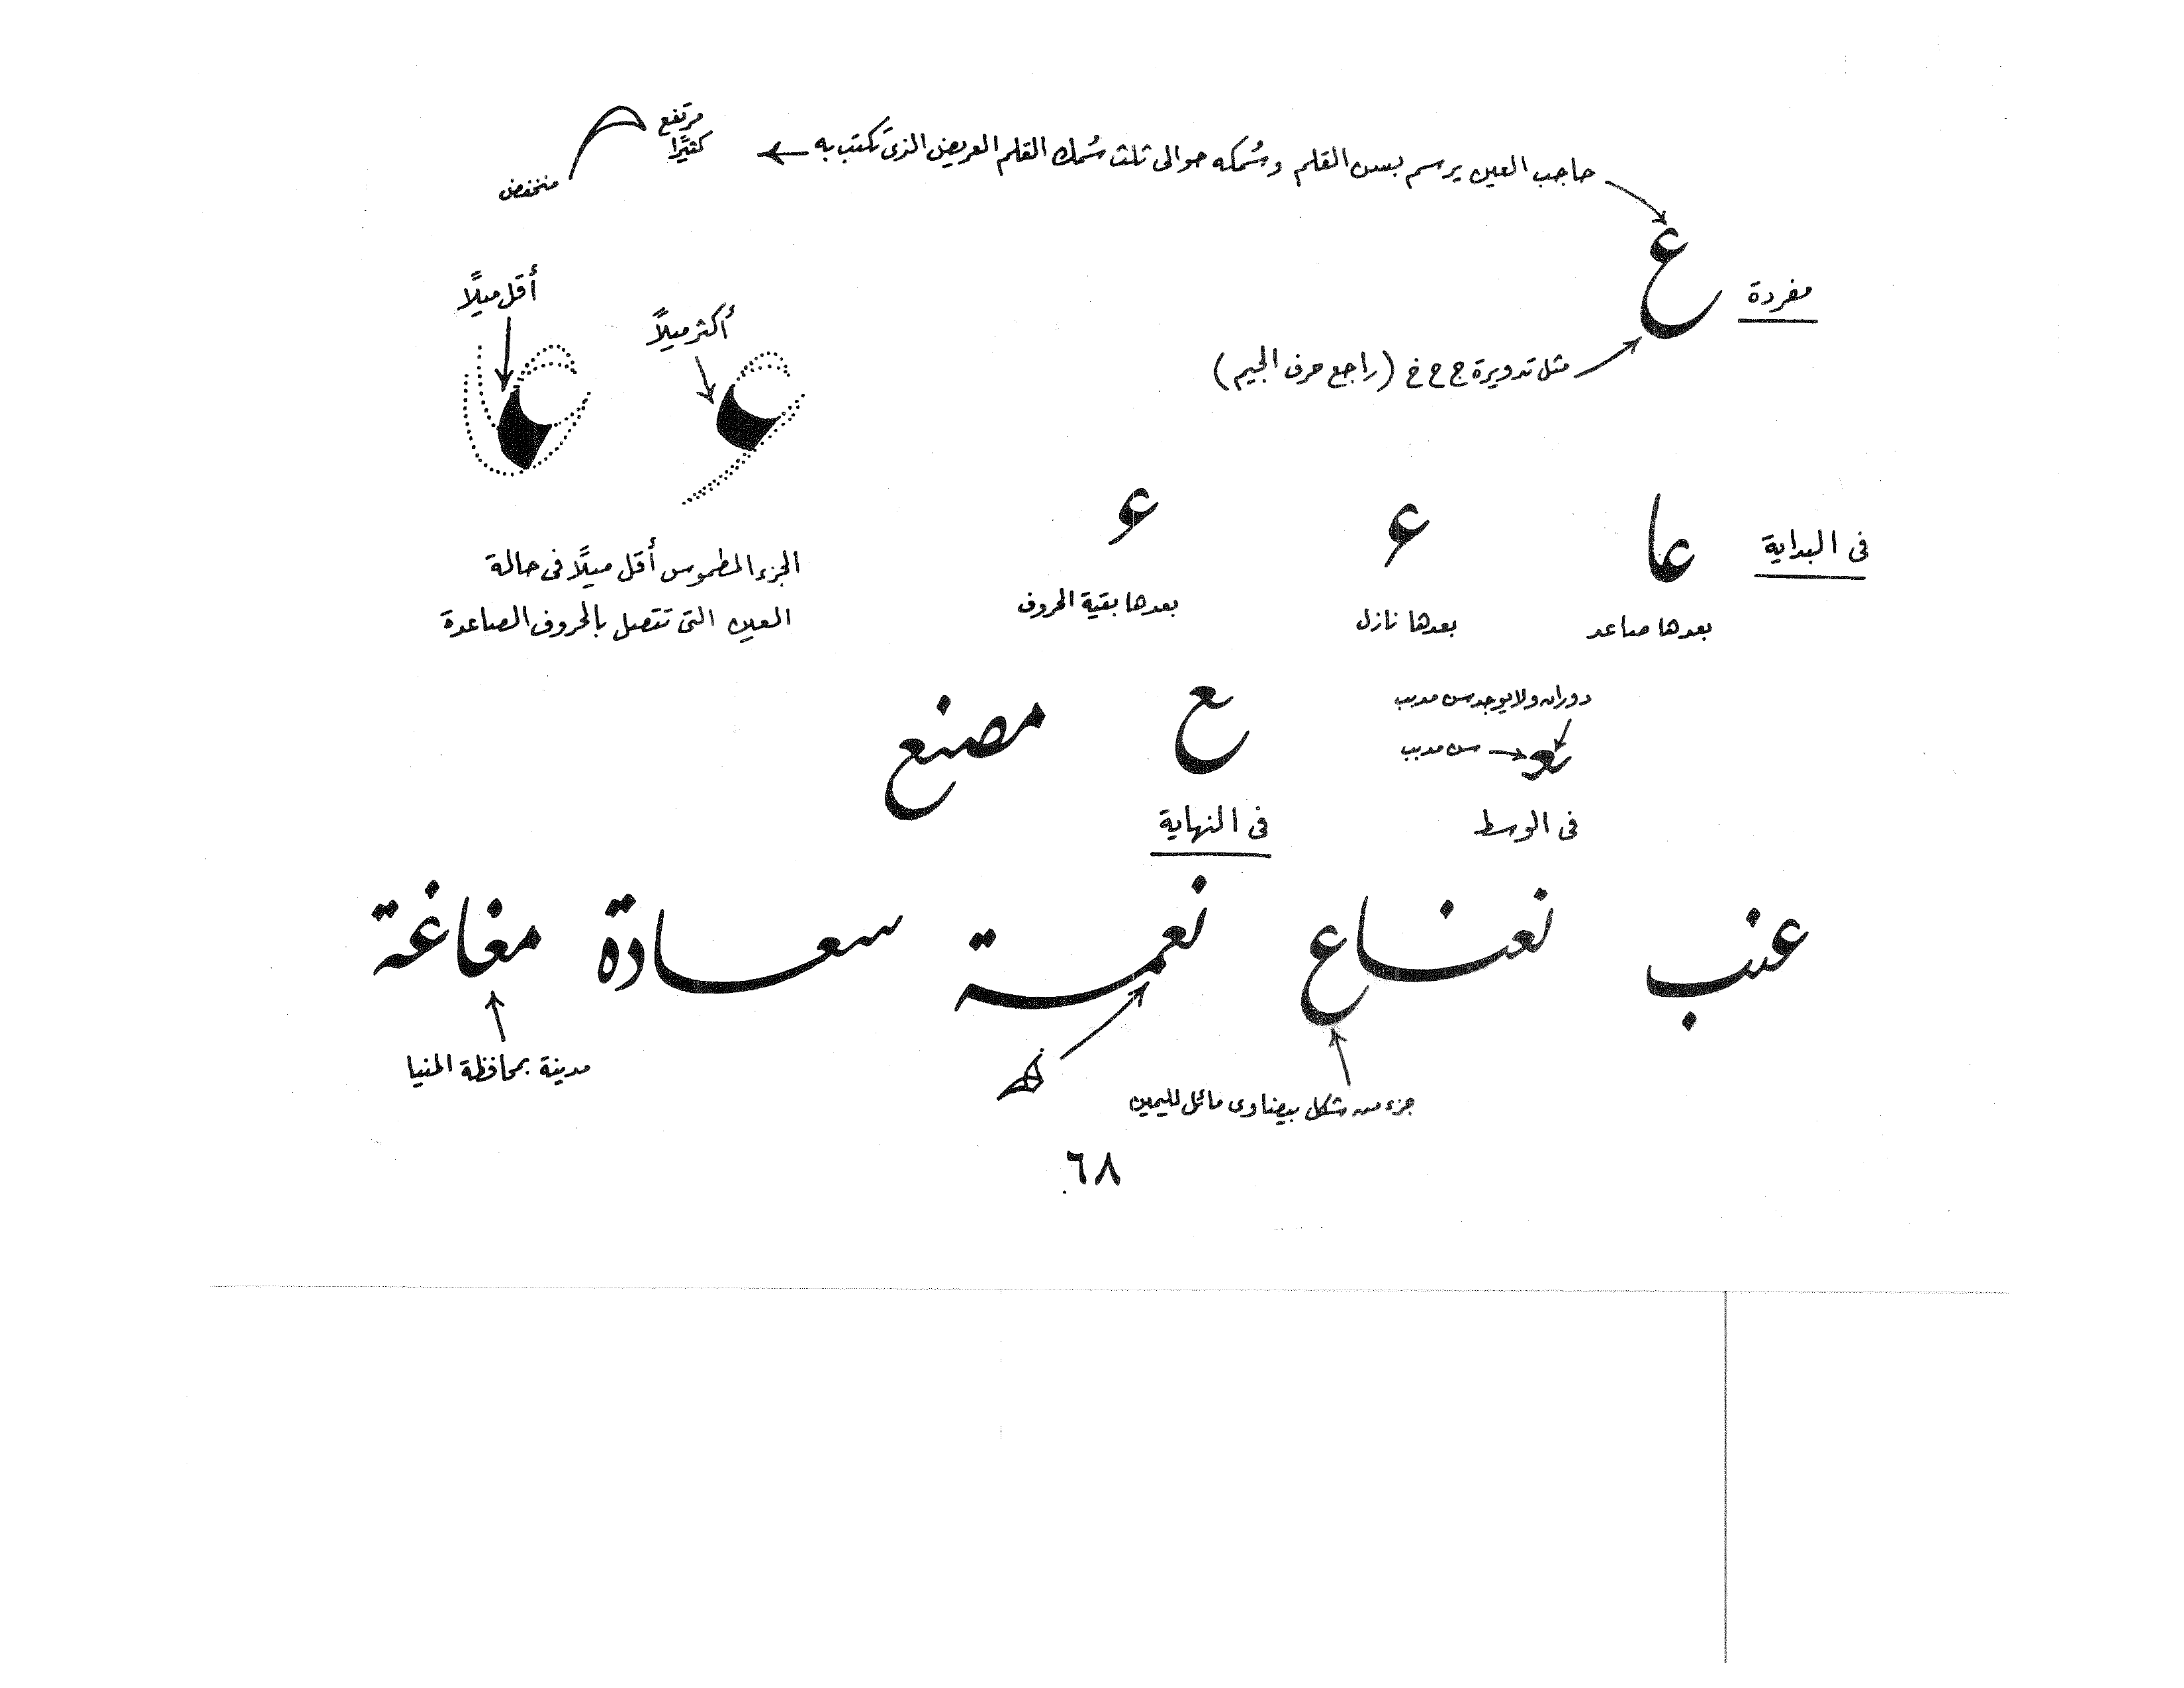 حاجب العين يرسم بسن القلم وسُمكه حوالى ثلث سُمك القلم العريض الذى تكتب به
مرتفع
كثيرًا
منخفض
ع
مفردة
مثل تدويرة ج ح خ (راجع حرف الجيم)
أكثر ميلًا
أقل ميلًا
الجزء المطموس أقل ميلًا فى حالة
العين التى تتصل بالحروف الصاعدة
فى البداية
عا
بعدها صاعد
عـ
بعدها نازل
عـ
بعدها بقية الحروف
دوران ولا يوجد سن مدبب
سن مدبب
ـعـ
فى الوسط
ـع
فى النهاية
مصنع
عنب نعناع نعمة سعادة مغاغة
جزء من شكل بيضاوى مائل لليمين
مدينة بمحافظة المنيا
٦٨